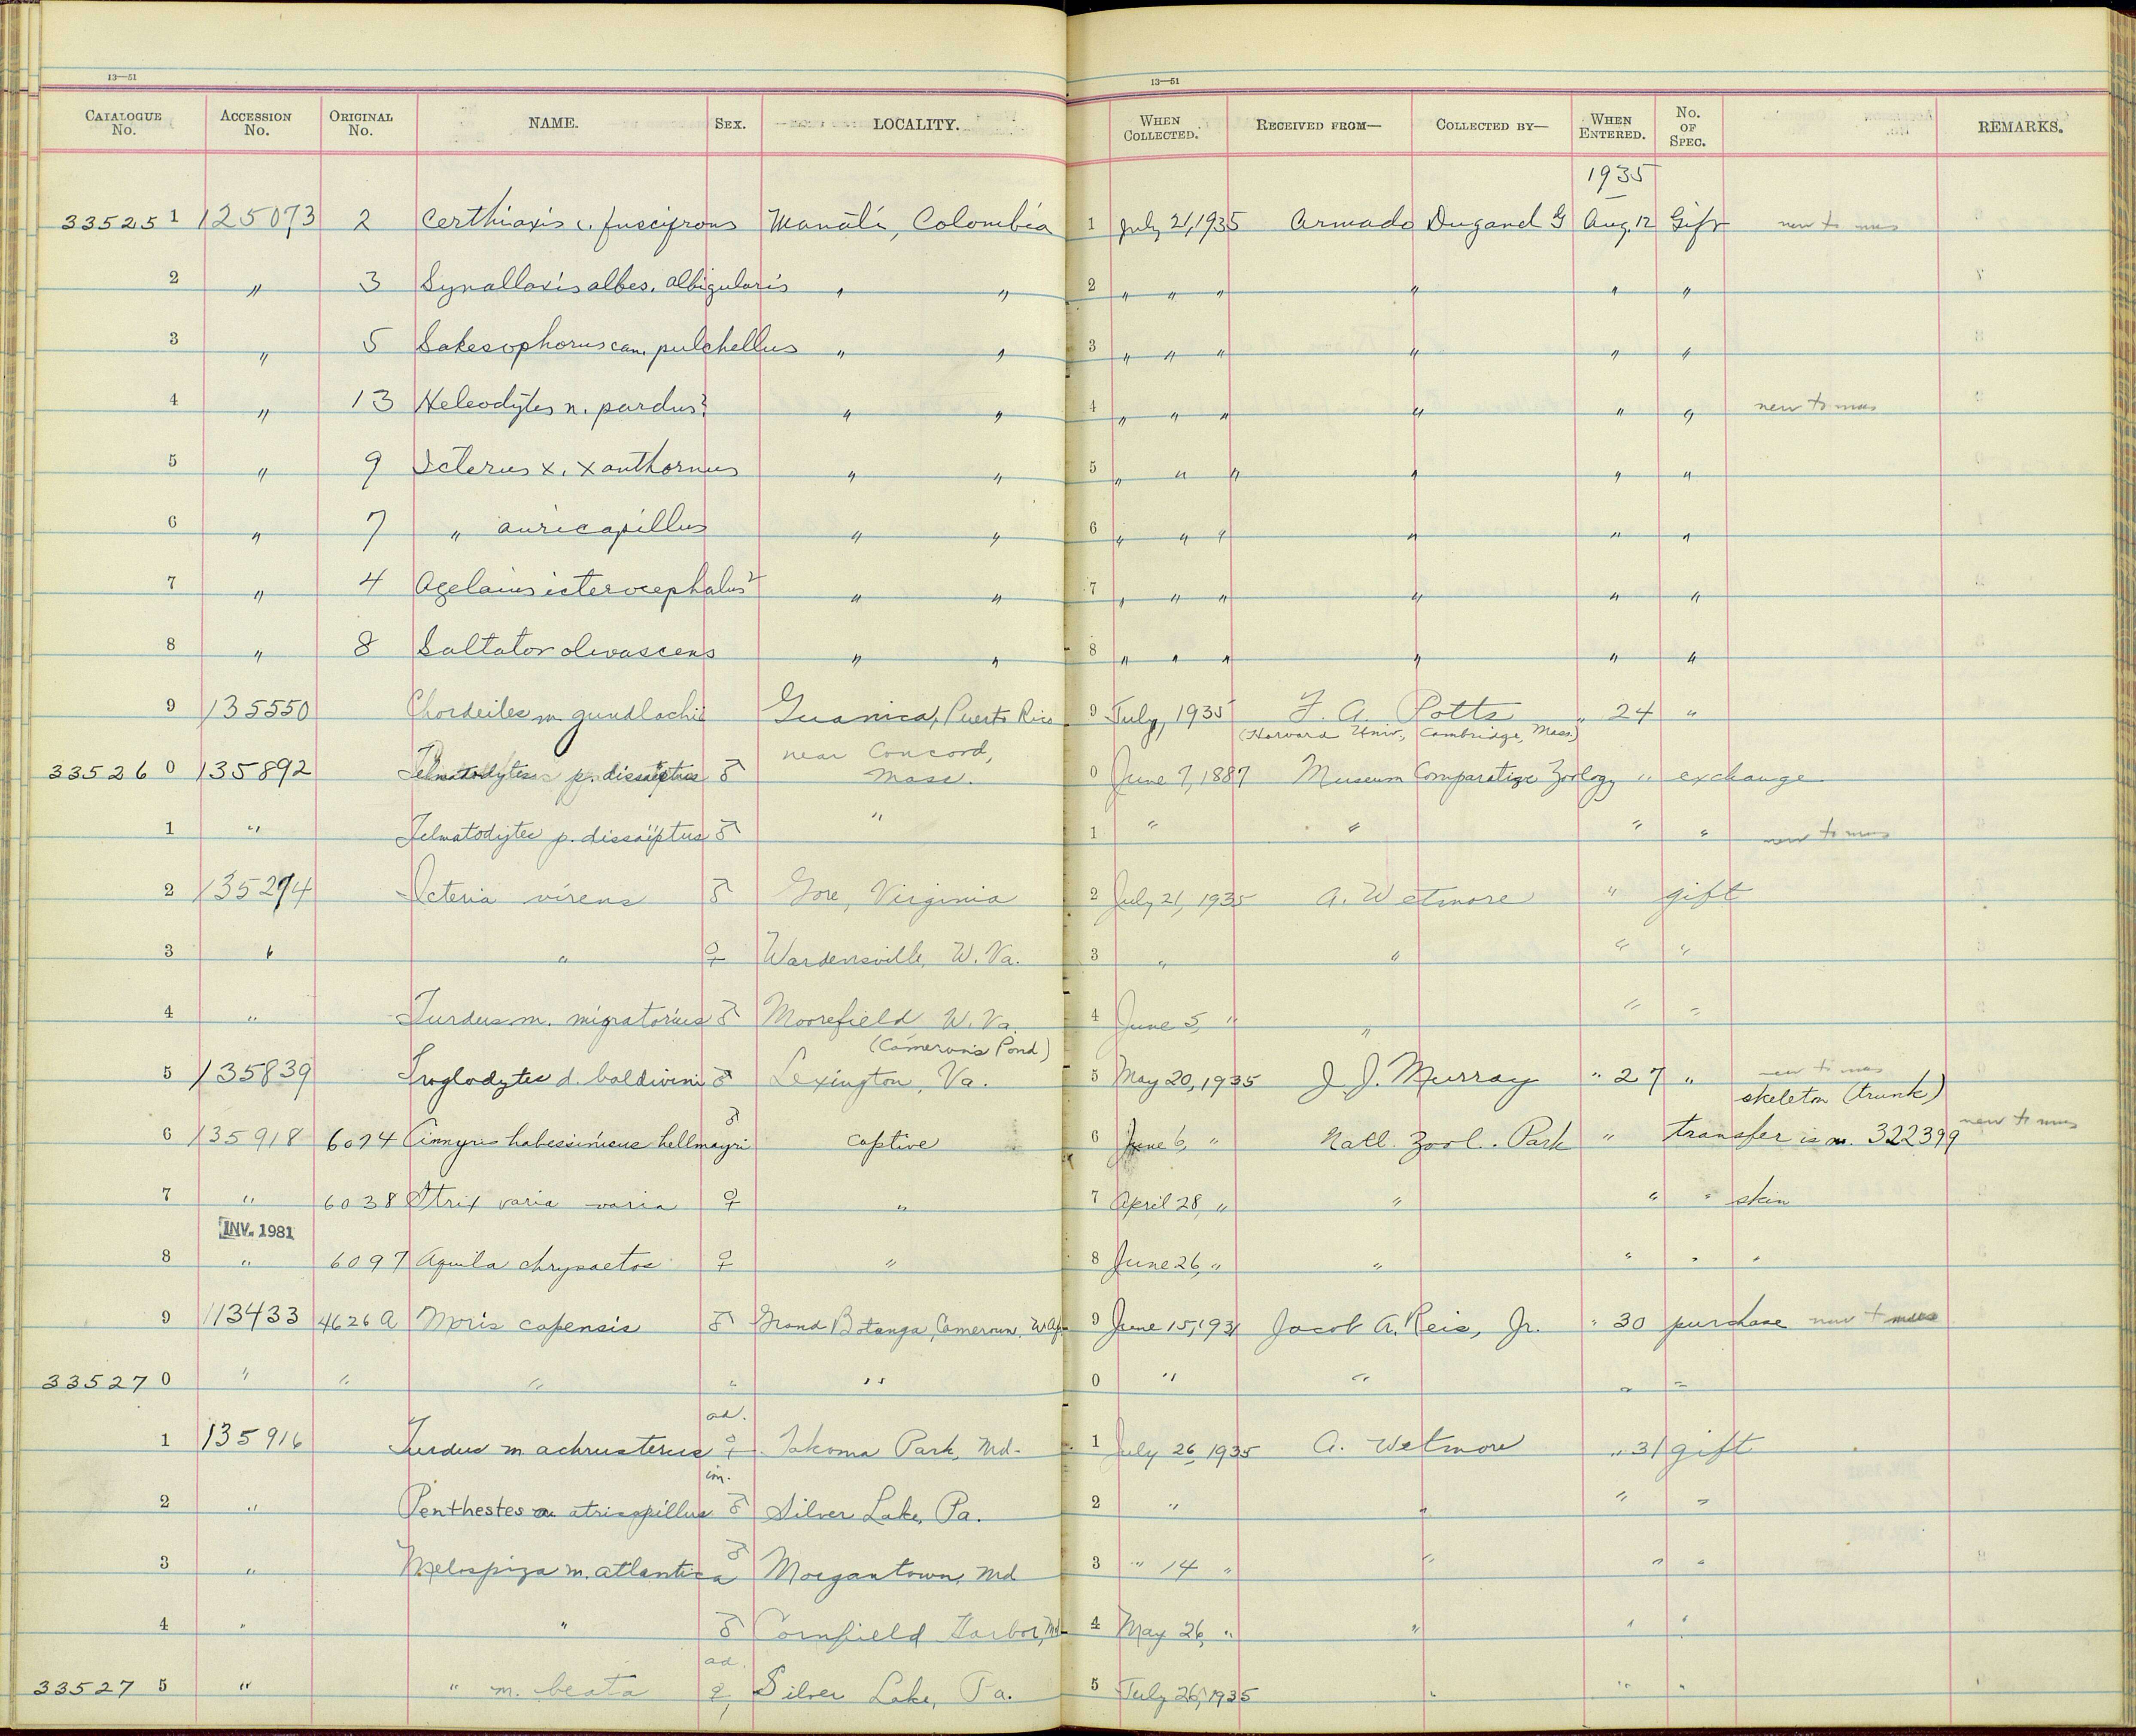 13—51
13—51
CATALOGUE No. ACCESSION No. ORIGINAL No. NAME. SEX. LOCALITY. WHEN COLLECTED. RECEIVED FROM— COLLECTED BY— WHEN ENTERED. No. OF SPEC. REMARKS.
1935
335251 125073 2 Certhiaxis c. fuscifrons Manatí, Colombia 1 July 21, 1935 Armado Dugand G Aug. 12 Gift new to mus
2 " 3 Synallaxis albes. albigularis " " 2 " " " " " "
3 " 5 Sakesophorus can. pulchellus " " 3 " " " " " "
4 " 13 Heleodytes n. pardus? " " 4 " " " " " " new to mus
5 " 9 Icterus x. xanthornus " " 5 " " " " " "
6 " 7 " auricapillus " " 6 " " " " " "
7 " 4 Agelaius icterocephalus? " " 7 " " " " " "
8 " 8 Saltator olivascens " " 8 " " " " " "
9 135550 Chordeiles m gundlachii Guanica, Puerto Rico 9 July, 1935 F. A. Potts " 24 "
(Harvard Univ., Cambridge, Mass.)
near Concord,
335260 135892 Telmatodytes p. dissaëptus ♂ Mass. 0 June 7, 1887 Museum Comparative Zoology " exchange
1 " Telmatodytes p. dissaëptus ♂ " 1 " " " " new to mus
2 135274 Icteria virens ♂ Gore, Virginia 2 July 21, 1935 A. Wetmore " gift
3 " " ♀ Wardensville, W. Va. 3 " " " "
4 " Turdus m. migratorius ♂ Moorefield W. Va. 4 June 5, " " " "
(Cameron's Pond)
5 135839 Troglodytes d. baldwini ♂ Lexington, Va. 5 May 20, 1935 J. J. Murray " 27 " new to mus
skeleton (trunk)
6 135918 6074 Cinnyris habessinicus hellmayri ♂ captive 6 June 6, " Natl. Zool. Park " transfer is m. 322399 new to mus
7 " 6038 Strix varia varia ♀ " 7 April 28, " " " " skin
INV. 1981
8 " 6097 Aquila chrysaetos ♀ " 8 June 26, " " " " "
9 113433 4626 A Moris capensis ♂ Grand Batanga, Cameroun, W. Af. 9 June 15, 1931 Jacob A. Reis, Jr. " 30 purchase new to mus
335270 " " " " " 0 " " " "
ad.
1 135916 Turdus m achrusterus ♀ Takoma Park, Md. 1 July 26, 1935 A. Wetmore " 31 gift
im.
2 " Penthestes a atricapillus ♂ Silver Lake, Pa. 2 " " " "
3 " Melospiza m. atlantica ♂ Morgantown, Md 3 " 14 " " " "
4 " " ♂ Cornfield Harbor, Md 4 May 26, " " " "
ad.
335275 " " m. beata ♀ Silver Lake, Pa. 5 July 26, 1935 " " "